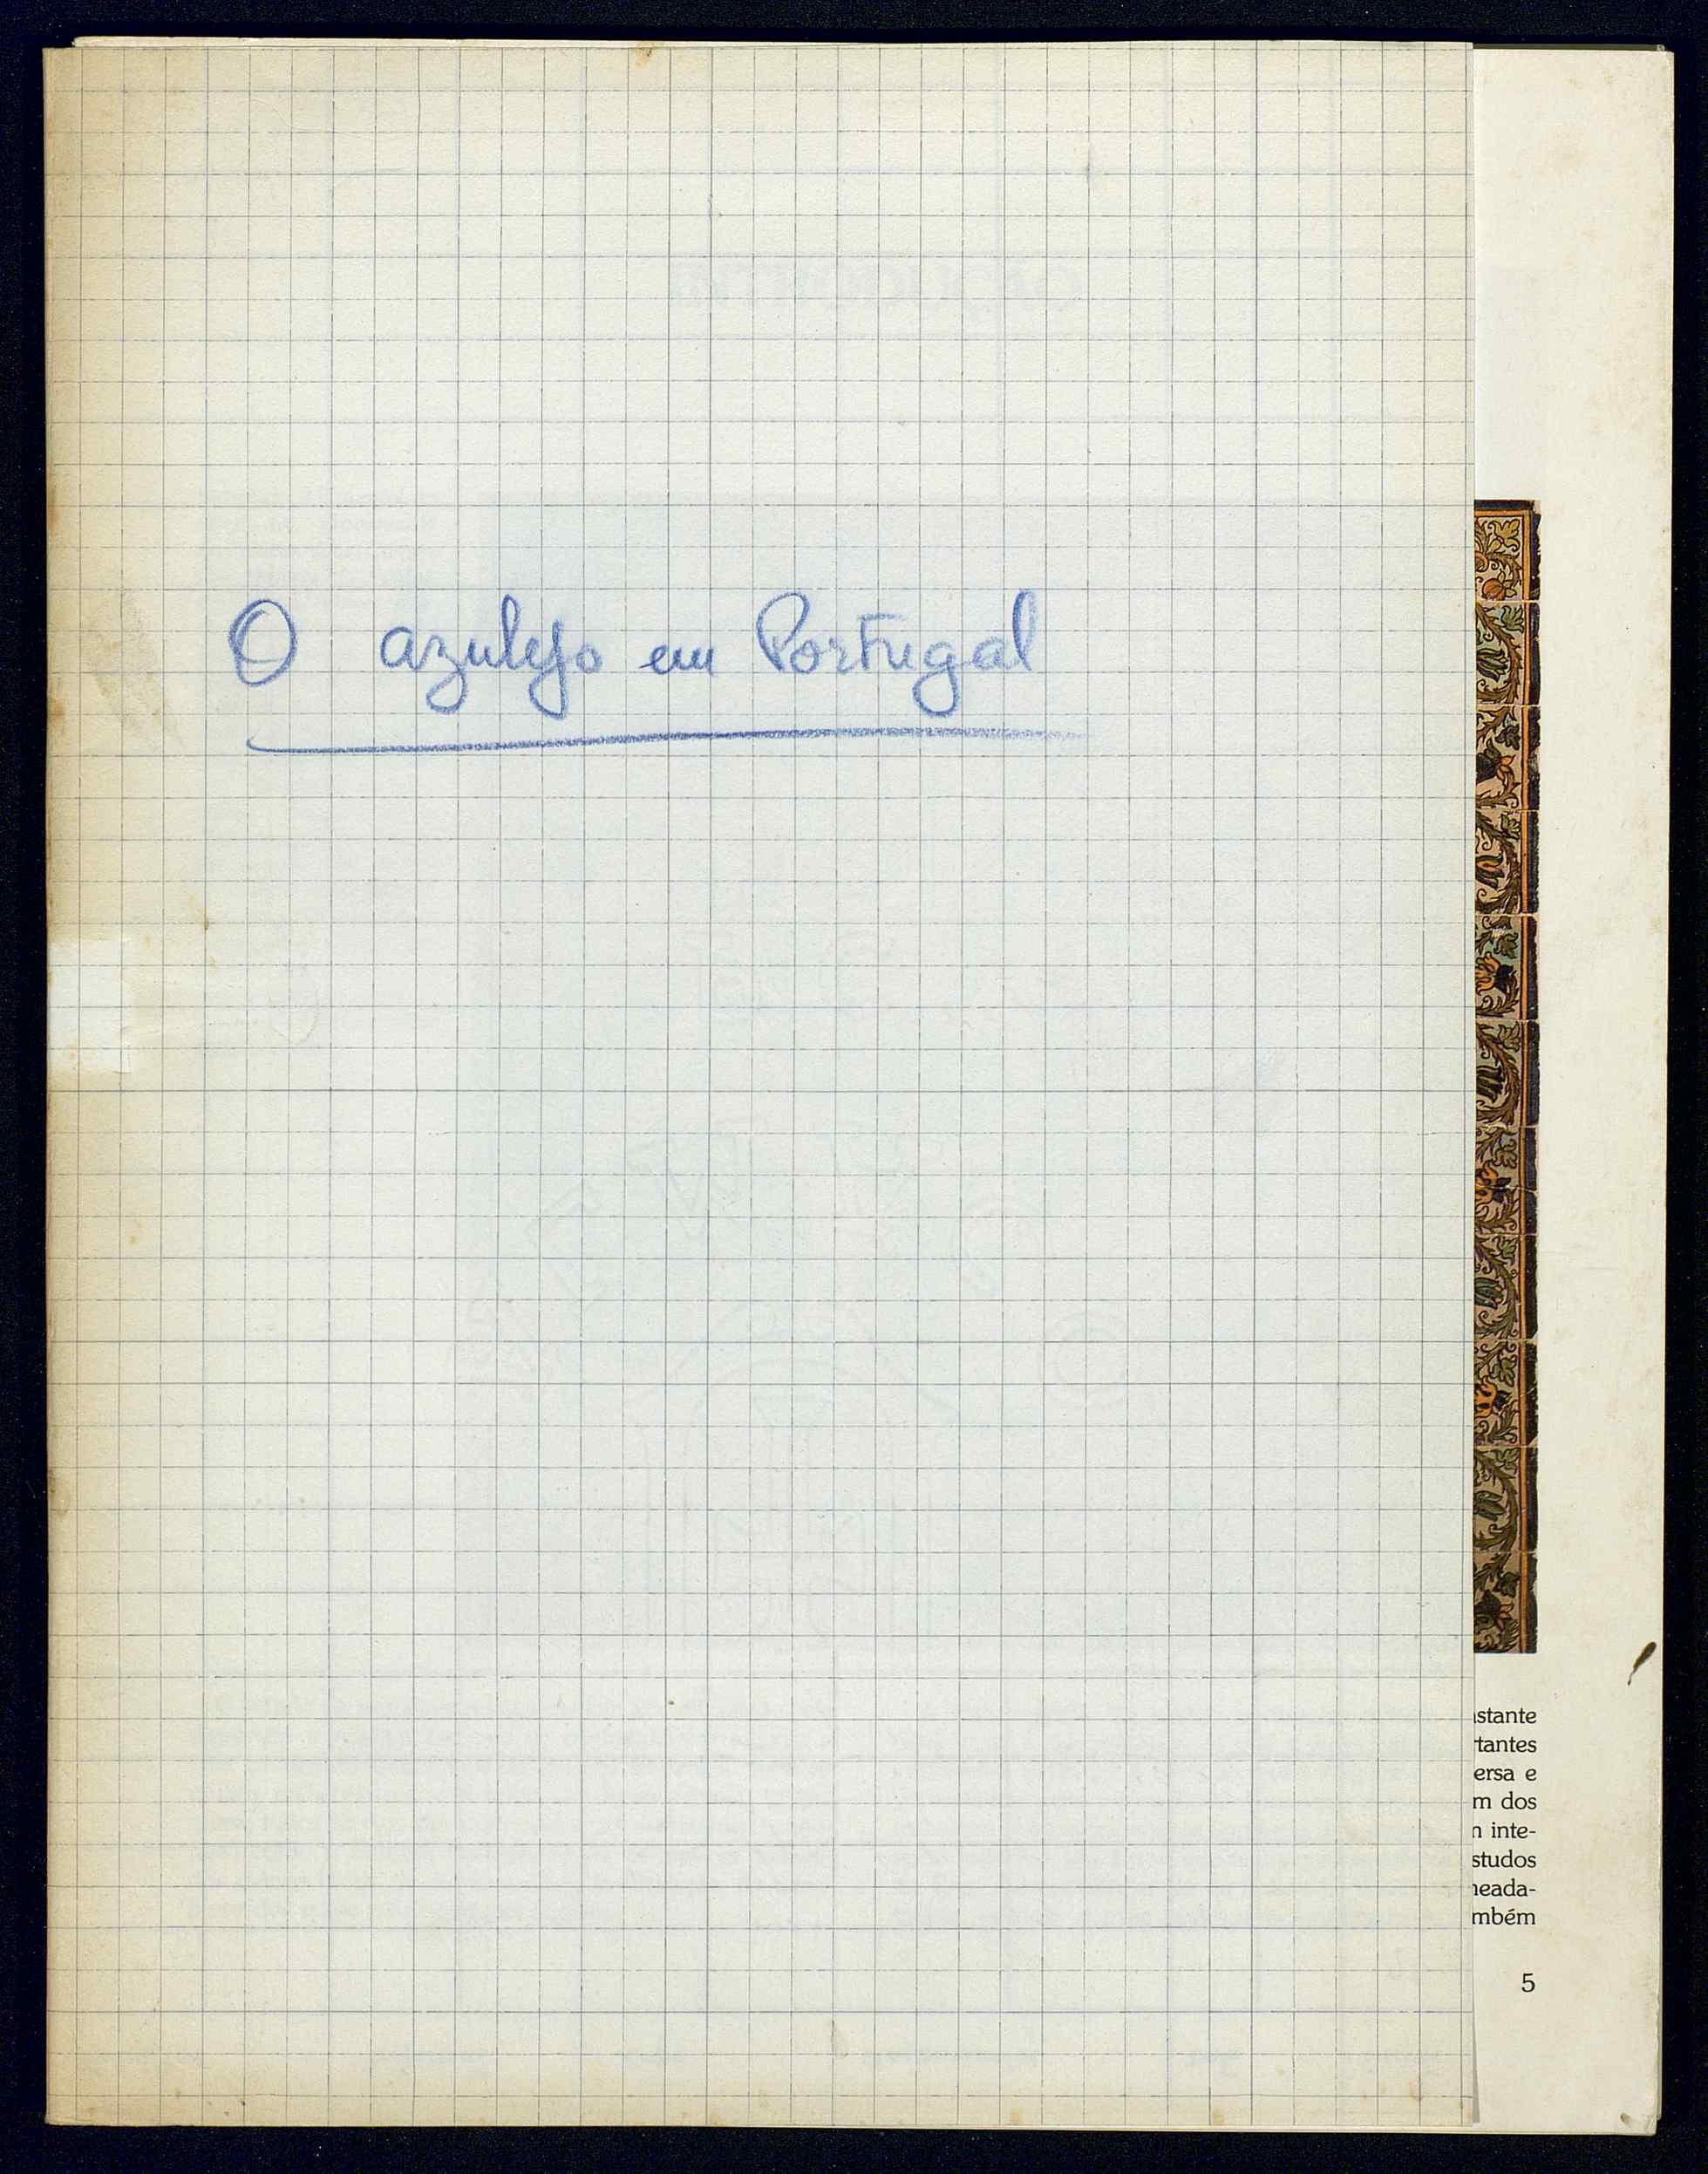 O azulejo em Portugal
stante
tantes
ersa e
m dos
inte-
studos
eada-
mbém
5